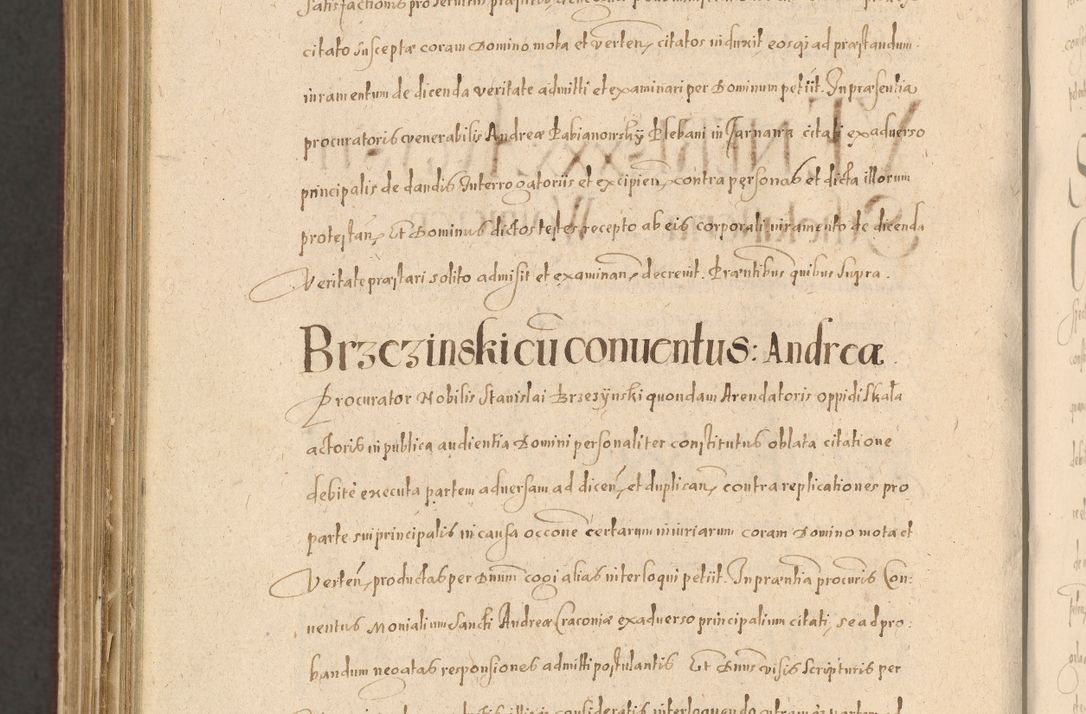 citato susceptæ coram Domino mota et verten, citatos induxit eosqı ad præstandum
iuramentum de dicenda veritate admitti et examinari per Dominum petiit. In præsentia
procuratoris venerabilis Andreæ Babianowsky Plebani in Jarnawa citati ex adverso
principalis de dandis Interrogatoriis et excipien, contra personas et dicta illorum
protestan, Et Dominus dictos testes recepto ab eis corporali iuramento de dicenda
Veritate præstari solito admisit et examinan, decrevit. Præntibus quibus supra.
Brzezinski cū conuentus: Andreæ
Procurator Nobilis Stanislai Brzezÿnski quondam Arendatoris oppidi Skała
actoris in publica audientia Domini personaliter constitutus oblata citatione
debitè executa partem aduersam ad dicen, et duplican, contra replicationes pro
parte sui principalis in causa occone certarum iniuriarum coram Domino mota et
Verten, productas per Dnum cogi alias interloqui petiit. In præntia procuris Con:
uentus Monialium Sancti Andreæ Cracouiæ ex aduerso principalium citati, se ad pro:
bandum negatas responsiones admitti postulantis Et Dnus visis scripturis per